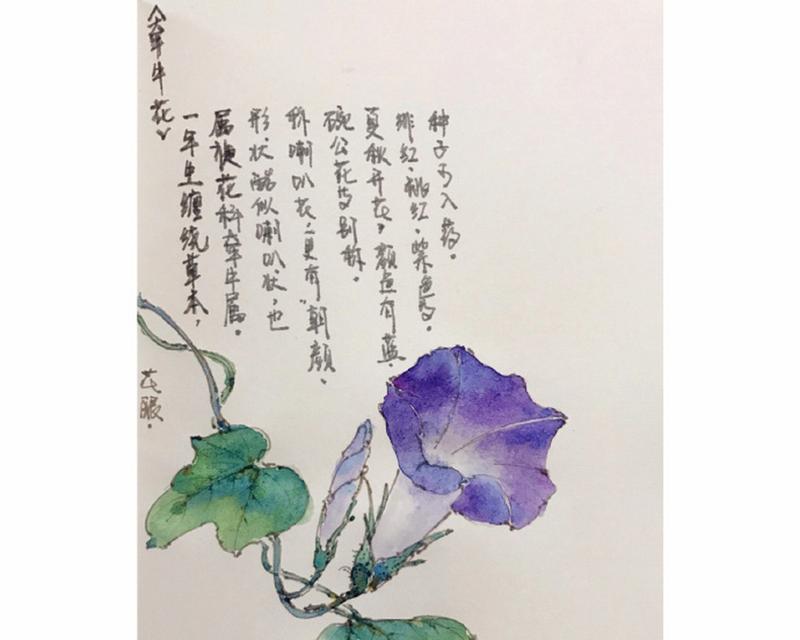 《牵牛花》
一年生缠绕草本，
属旋花科牵牛属。
形状酷似喇叭状，也
称喇叭花，更有“朝颜、
碗公花等别称。
夏秋开花，颜色有蓝、
绯红、桃红、紫色等。
种子可入药。
花眼。